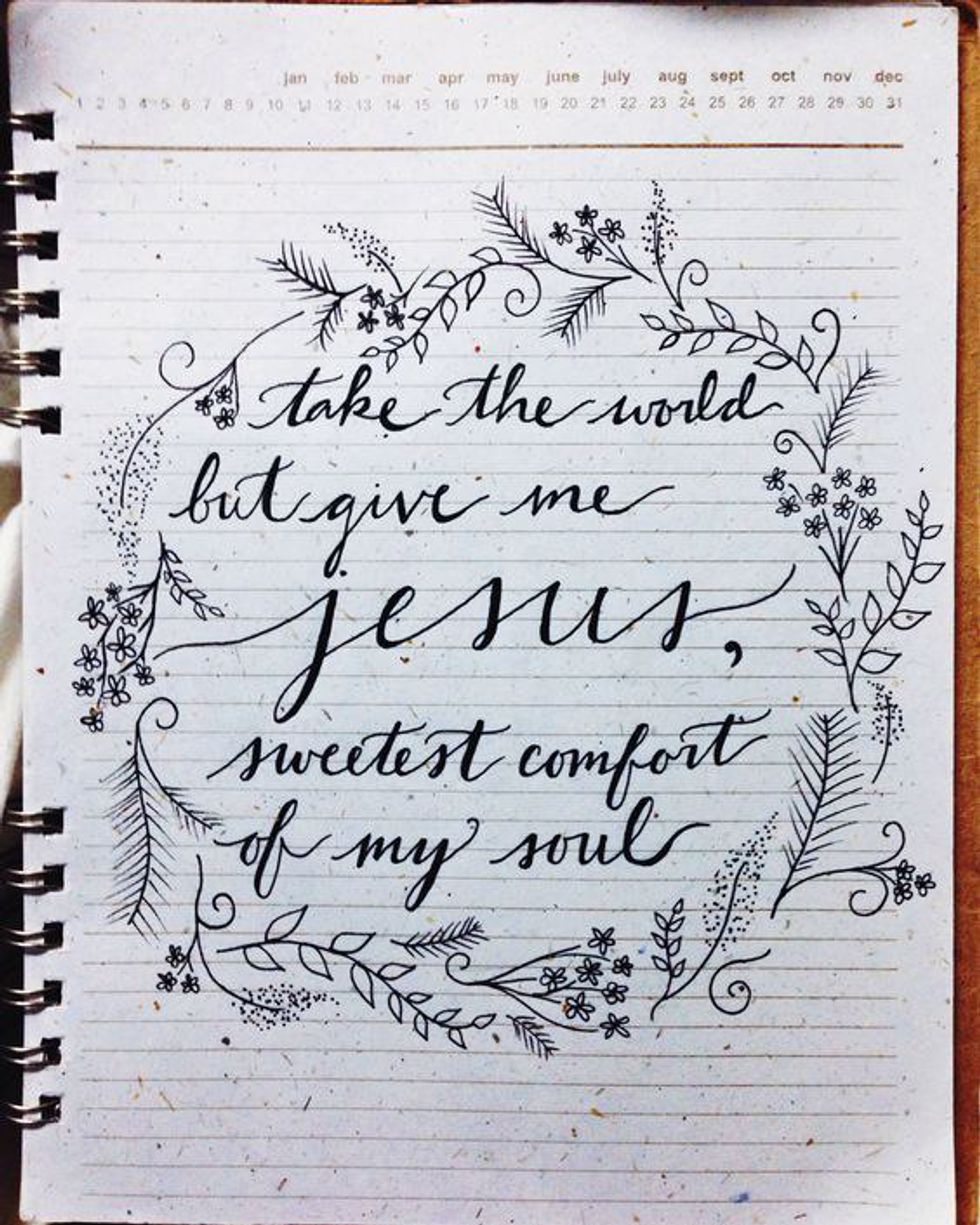 jan feb mar apr may june july aug sept oct nov dec
1 2 3 4 5 6 7 8 9 10 11 12 13 14 15 16 17 18 19 20 21 22 23 24 25 26 27 28 29 30 31
take the world
but give me
jesus,
sweetest comfort
of my soul